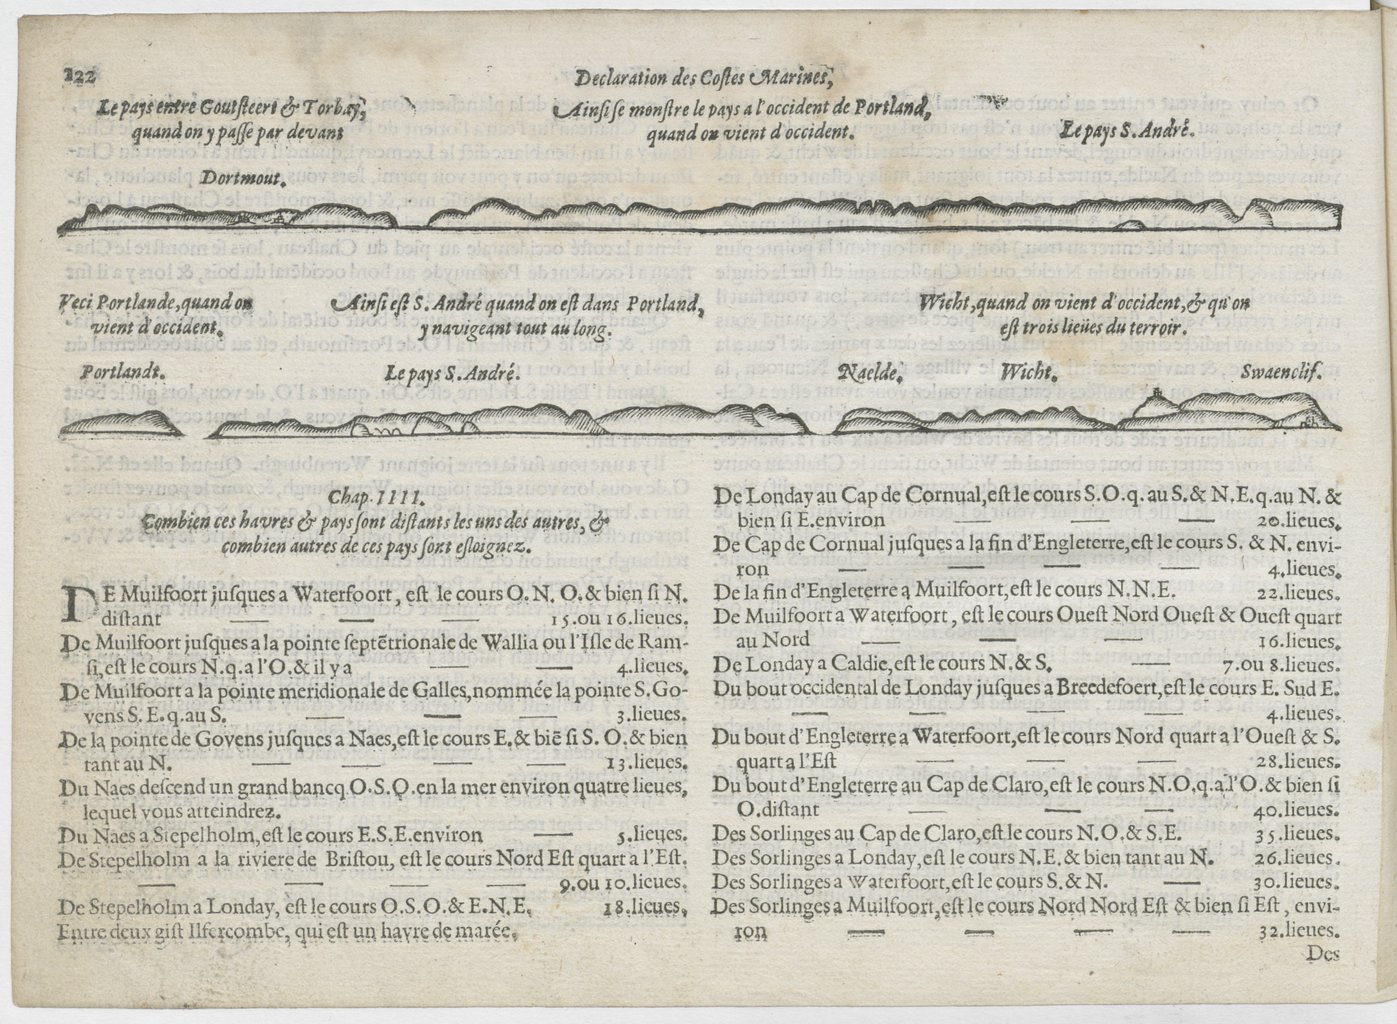 122
Declaration des Costes Marines,
Le pays entre Goutsteert & Torbay,
quand on y passe par devant
Ainsi se monstre le pays a l'occident de Portland,
quand on vient d'occident.
Le pays S. André.
Dortmout.
Veci Portlande, quand on
vient d'occident.
Ainsi est S. André quand on est dans Portland,
y navigeant tout au long.
Wicht, quand on vient d'occident, & qu'on
est trois lieües du terroir.
Portlandt.
Le pays S. André.
Naelde.
Wicht.
Swaenclif.
Chap. IIII.
Combien ces havres & pays sont distants les uns des autres, &
combien autres de ces pays sont esloignez.
DE Muilfoort jusques a Waterfoort, est le cours O. N. O. & bien si N.
distant — — — 15. ou 16. lieues.
De Muilfoort jusques a la pointe septẽtrionale de Wallia ou l'Isle de Ram-
si, est le cours N. q. a l'O. & il y a — — 4. lieues.
De Muilfoort a la pointe meridionale de Galles, nommée la pointe S. Go-
vens S. E. q. au S. — — — 3. lieues.
De la pointe de Govens jusques a Naes, est le cours E. & biẽ si S. O. & bien
tant au N. — — — — 13. lieues.
Du Naes descend un grand bancq O. S. O. en la mer environ quatre lieues,
lequel vous atteindrez.
Du Naes a Stepelholm, est le cours E. S. E. environ — 5. lieues.
De Stepelholm a la riviere de Bristou, est le cours Nord Est quart a l'Est.
— — — — 9. ou 10. lieues.
De Stepelholm a Londay, est le cours O. S. O. & E. N. E. 18. lieues.
Entre deux gist Ilfercombe, qui est un havre de marée.
De Londay au Cap de Cornual, est le cours S. O. q. au S. & N. E. q. au N. &
bien si E. environ — — — 20. lieues.
De Cap de Cornual jusques a la fin d'Engleterre, est le cours S. & N. envi-
ron — — — — 4. lieues.
De la fin d'Engleterre a Muilfoort, est le cours N. N. E. 22. lieues.
De Muilfoort a Waterfoort, est le cours Ouest Nord Ouest & Ouest quart
au Nord — — — 16. lieues.
De Londay a Caldie, est le cours N. & S. — 7. ou 8. lieues.
Du bout occidental de Londay jusques a Breedefoert, est le cours E. Sud E.
— — — — 4. lieues.
Du bout d'Engleterre a Waterfoort, est le cours Nord quart a l'Ouest & S.
quart a l'Est — — — 28. lieues.
Du bout d'Engleterre au Cap de Claro, est le cours N. O. q. a l'O. & bien si
O. distant — — — 40. lieues.
Des Sorlinges au Cap de Claro, est le cours N. O. & S. E. 35. lieues.
Des Sorlinges a Londay, est le cours N. E. & bien tant au N. 26. lieues.
Des Sorlinges a Waterfoort, est le cours S. & N. — 30. lieues.
Des Sorlinges a Muilfoort, est le cours Nord Nord Est & bien si Est, envi-
ron — — — — 32. lieues.
Des